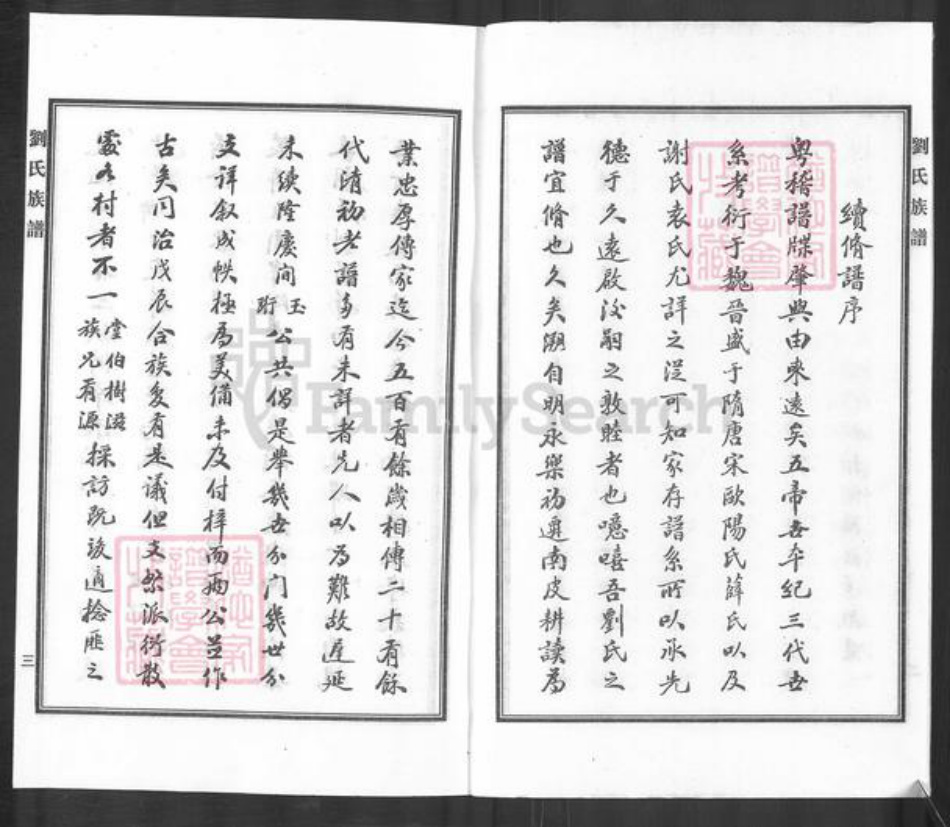 劉氏族譜
續脩譜序
粵稽譜牒肇興由來遠矣五帝世本紀三代世
系考衍于魏晉盛于隋唐宋歐陽氏薛氏以及
謝氏袁氏尤詳之從可知家存譜系所以承先
德于久遠啟後嗣之敦睦者也噫嘻吾劉氏之
譜宜脩也久矣溯自明永樂初遷南皮耕讀為
業忠厚傳家迄今五百有餘歲相傳二十有餘
代清初老譜多有未詳者先人以為難故遲延
未續隆慶間玉珩公共倡是舉幾世分門幾世分
支詳叙成帙極為美備未及付梓而兩公並作
古矣同治戊辰合族復有是議但支繁派衍散
處各村者不一堂伯樹滋族兄有源採訪既竣適捻匪之
劉氏族譜
三
FamilySearch